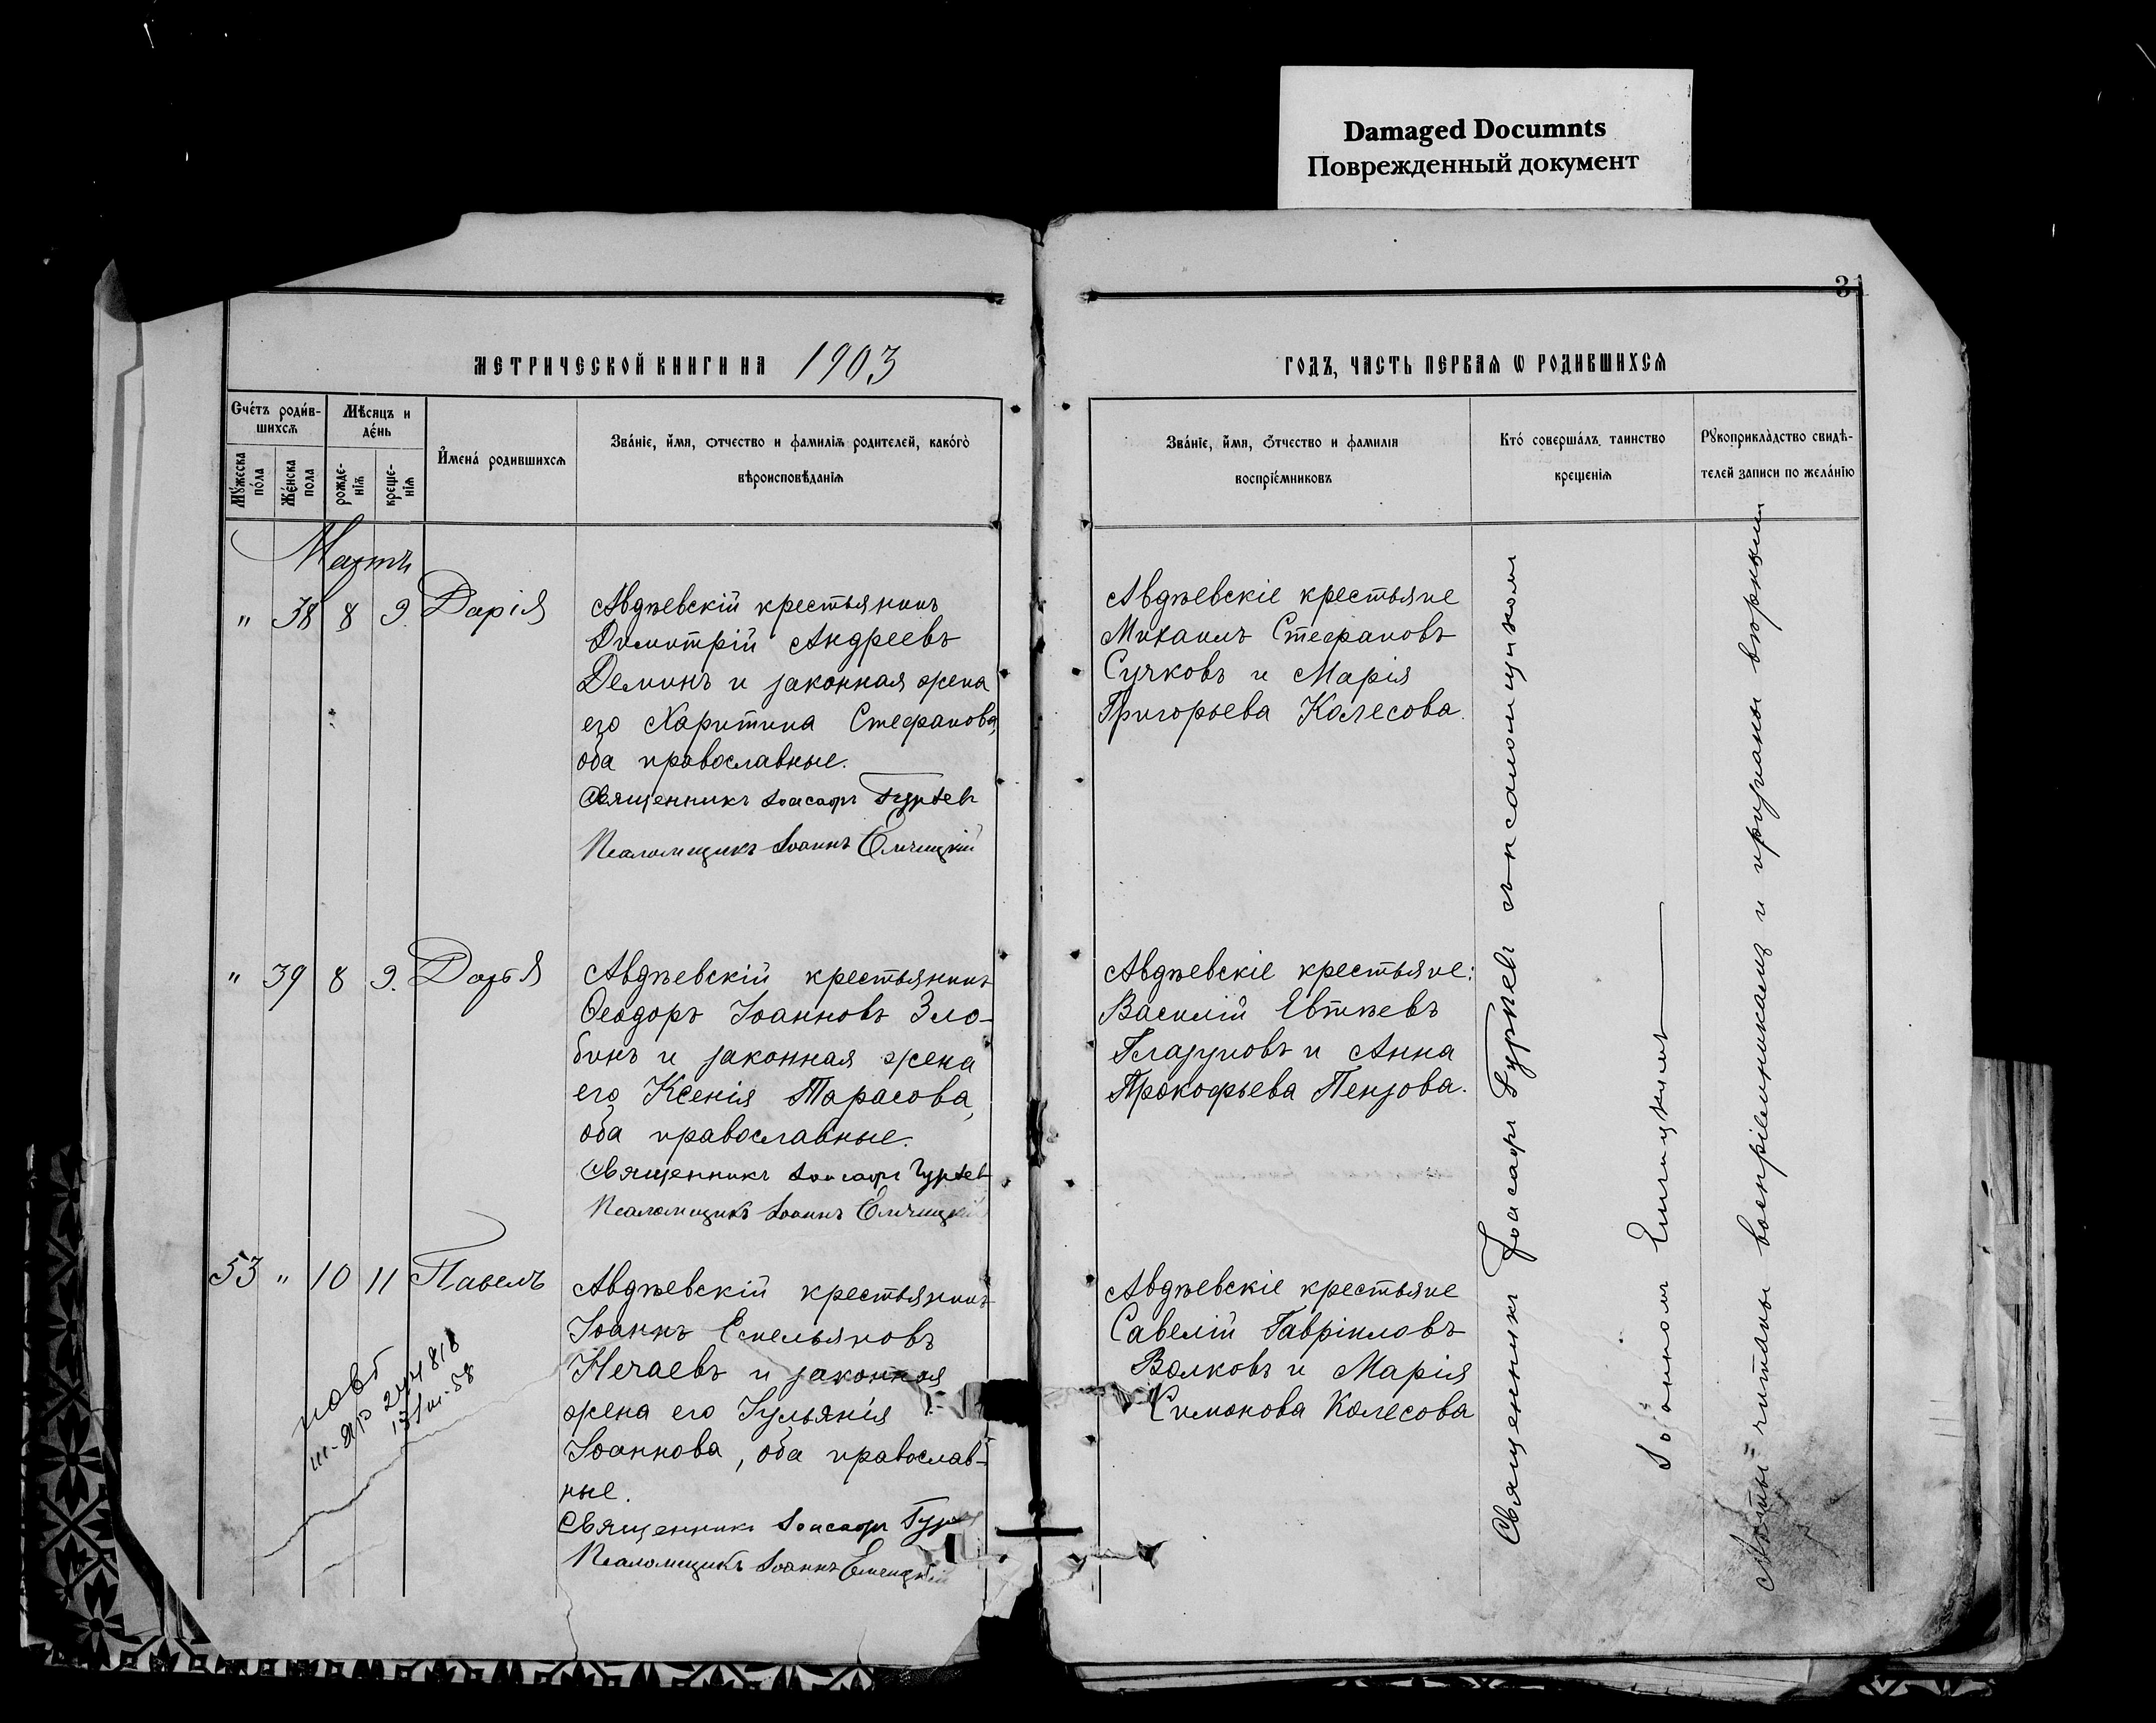 Damaged Documnts
Поврежденный документ
31
МЕТРИЧЕСКОЙ КНИГИ НА 1903
ГОДЪ, ЧАСТЬ ПЕРВАЯ Ѡ РОДИВШИХСЯ
Счётъ родив-
шихся
Мѣсяцъ и
день
Имена родившихся
Званіе, имя, отчество и фамилія родителей, какого
вѣроисповѣданія
Мужеска
пола
Женска
пола
рожде-
нія
креще-
нія
Званіе, имя, отчество и фамилія
воспріемниковъ
Кто совершалъ таинство
крещенія
Рукоприкладство свидѣ-
телей записи по желанію
Мартъ
" 38 8 9. Дарія
Авдѣевскій крестьянинъ
Димитрій Андреевъ
Деминъ и законная жена
его Харитина Стефанова,
оба православные.
Священникъ Іоасафъ Гурьев
Псаломщикъ Іоаннъ
Авдѣевскіе крестьяне
Михаилъ Стефановъ
Сучковъ и Марія
Григорьева Колесова.
" 39 8 9. Дарья
Авдѣевскій крестьянинъ
Ѳеодоръ Іоанновъ Зло-
бинъ и законная жена
его Ксенія Тарасова,
оба православные.
Священникъ Іоасафъ Гурьев
Псаломщикъ Іоаннъ
Авдѣевскіе крестьяне:
Василій Евтѣевъ
Глазуновъ и Анна
Прокофьева Пензова.
53 " 10 11 Павелъ
Авдѣевскій крестьянинъ
Іоаннъ Емельяновъ
Нечаевъ и законная
жена его Іульянія
Іоаннова, оба православ-
ные.
Священникъ Іоасафъ
Псаломщикъ Іоаннъ
Авдѣевскіе крестьяне
Савелій Гавріиловъ
Волковъ и Марія
Симонова Колесова
повт
244818
Священникъ Іоасафъ Гурьевъ съ псаломщикомъ
Іоанномъ
читаны воспріемникамъ и признаны вѣрными